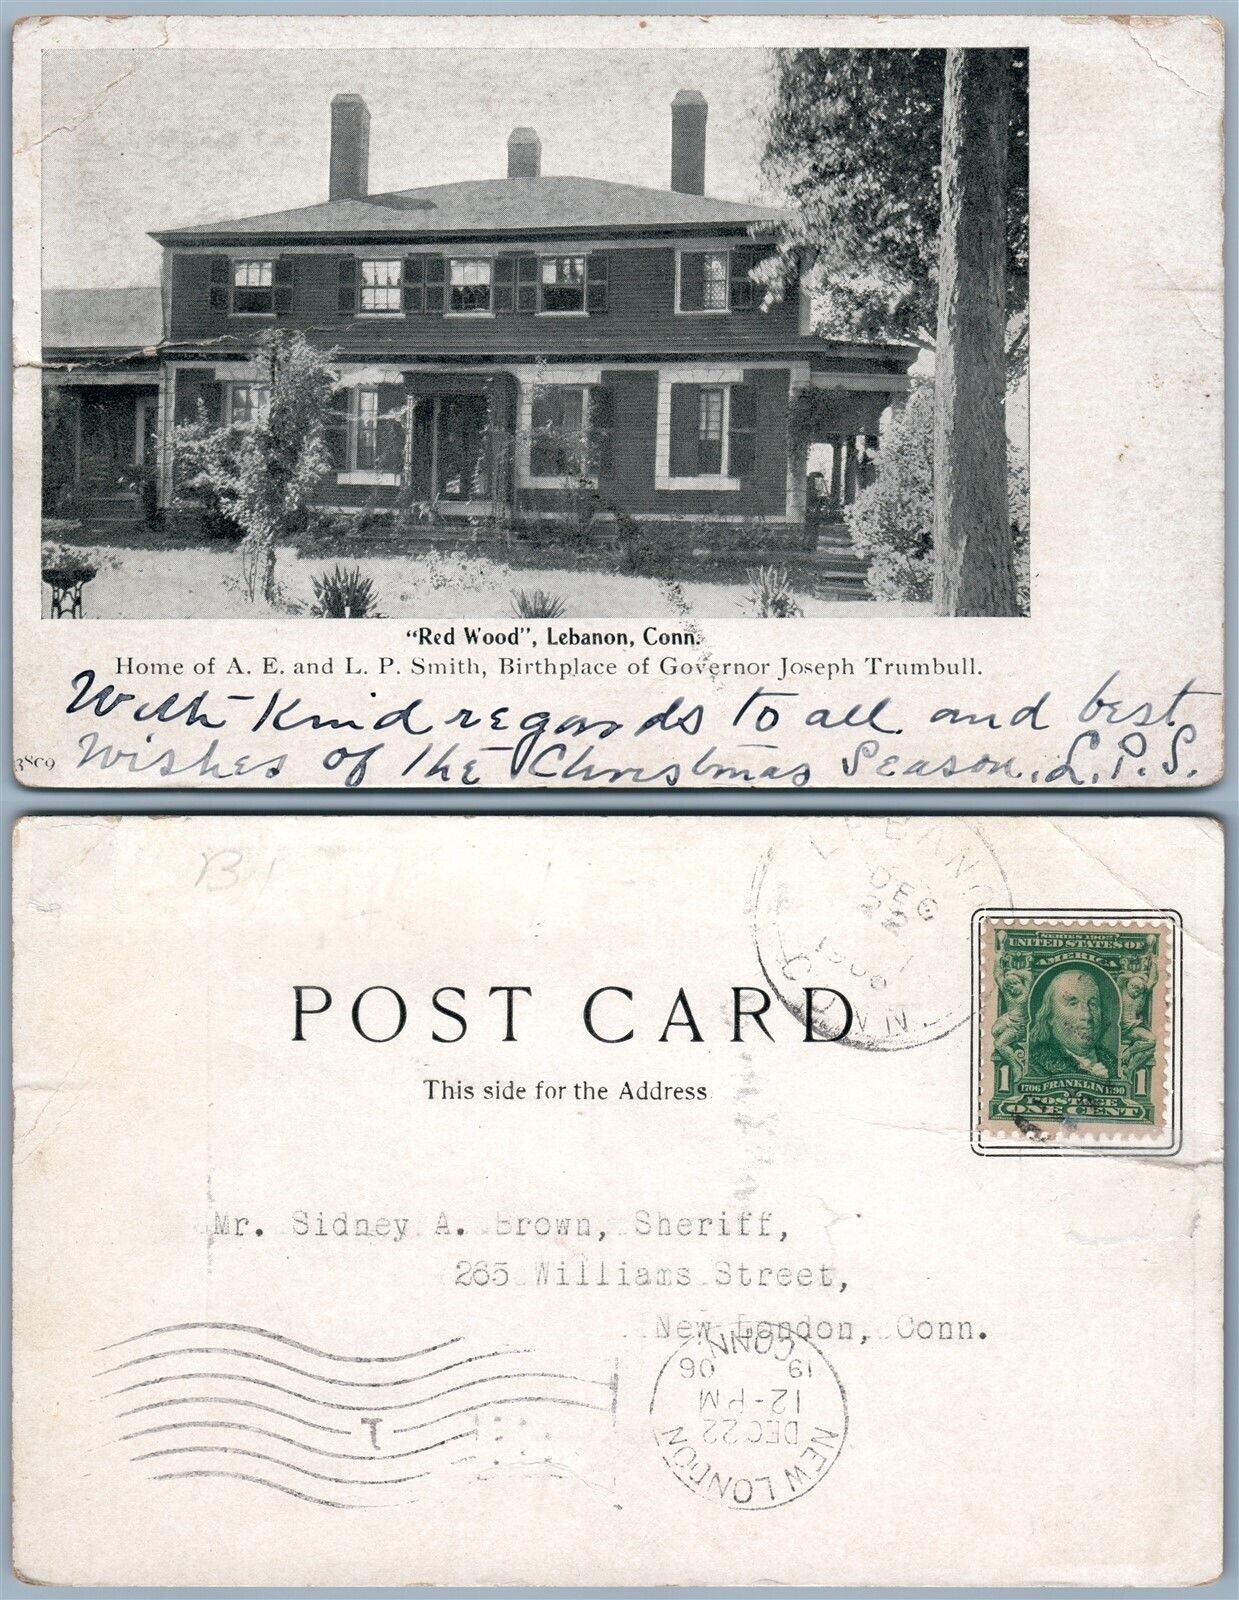 "Red Wood", Lebanon, Conn.
Home of A. E. and L. P. Smith, Birthplace of Governor Joseph Trumbull.
With Kind regards to all and best
Wishes of the Christmas Season. L. P. S.
3809
B1
LEBANON
DEC
22
1906
CONN.
SERIES 1902
UNITED STATES OF
AMERICA
1 1706 FRANKLIN 1790 1
POSTAGE
ONE CENT
POST CARD
This side for the Address
Mr. Sidney A. Brown, Sheriff,
265 Williams Street,
New London, Conn.
NEW LONDON
DEC 22
12-PM
1906
CONN.
1